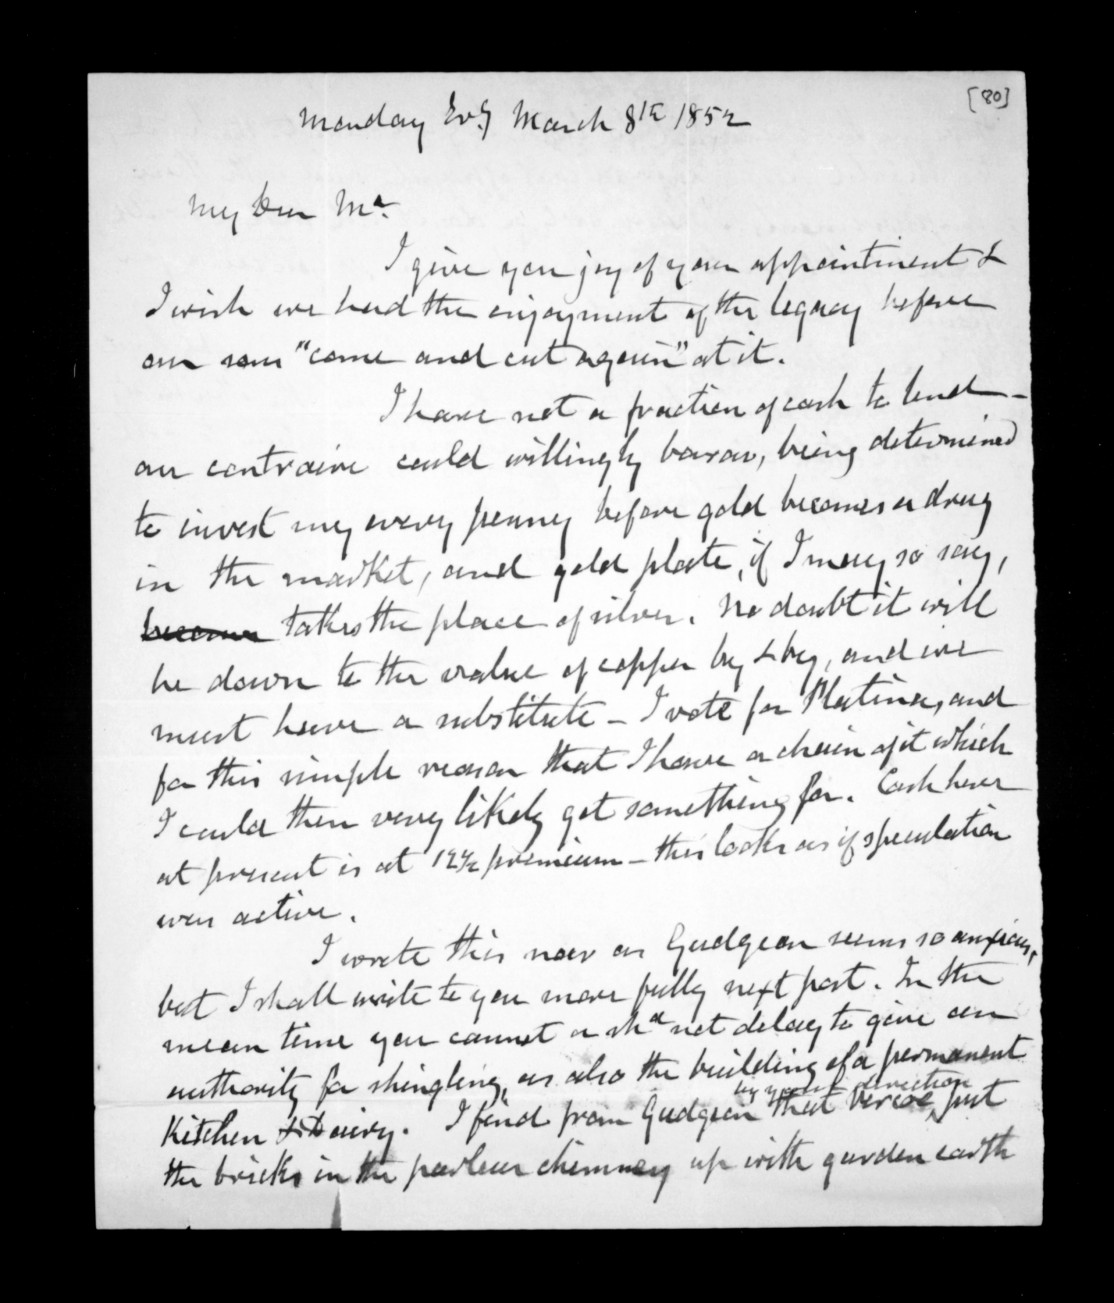 [80]
Monday Evg March 8th 1852
My Dear Mc.
I give you joy of your appointment &
I wish we had the enjoyment of the legacy before
our "come and cut again" at it.
I have not a fraction of cash to lend -
au contraire could willingly borrow, being determined
to invest my every penny before gold becomes a drug
in the market, and gold plate, if I may so say,
become takes the place of silver. No doubt it will
be down to the value of copper by & by, and we
must have a substitute - I vote for Platina, and
for this simple reason that I have a chain of it which
I could then very likely get something for. Cash here
at present is at 12½ premium - this looks as if speculation
were active.
I wrote this now as Gudgeon seems so anxious,
but I shall write to you more fully next post. In the
mean time you cannot or shd not delay to give an
authority for shingling, as also the building of a permanent
Kitchen & Dairy. I find from Gudgeon that Vercoe, by your direction put
the bricks in the parlour chimney up with garden earth